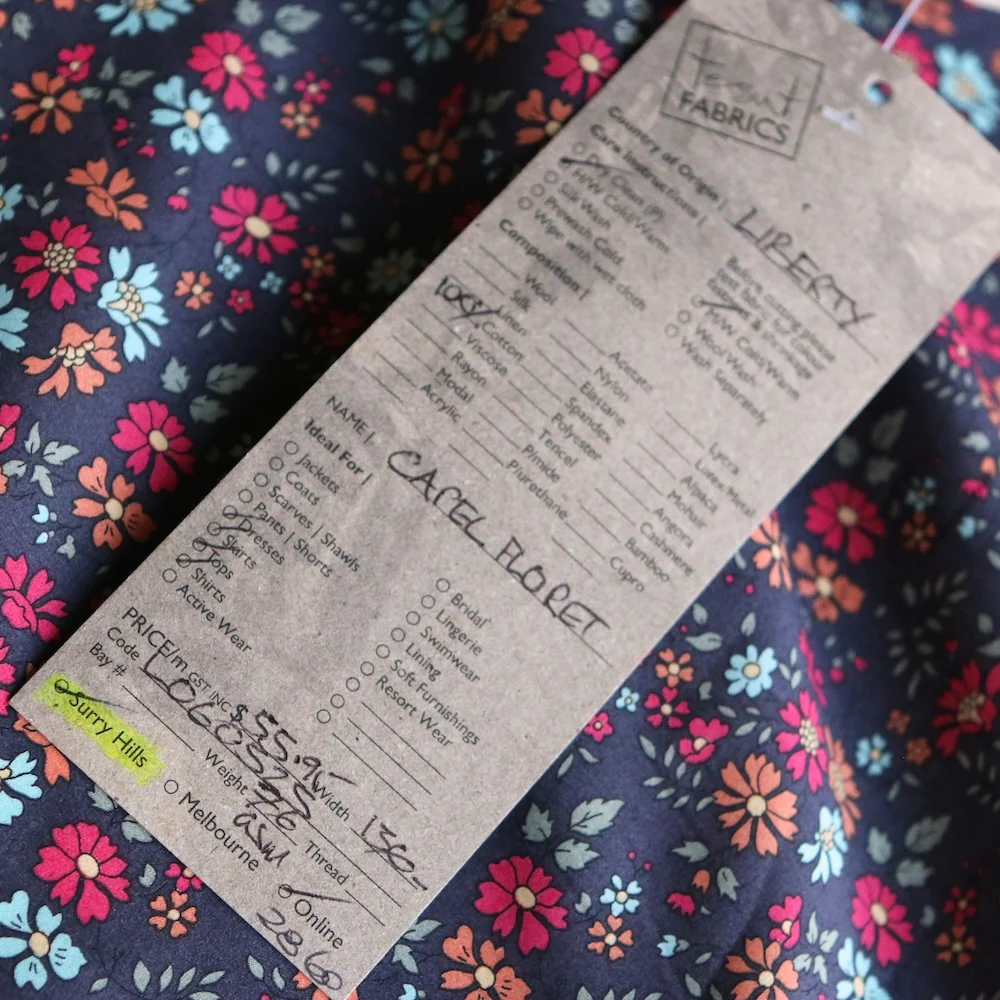 Tessuti
FABRICS
Country of Origin |
LIBERTY
Care Instructions |
Dry Clean (P)
H/W Cold/Warm
Silk Wash
Prewash Cold
Wipe with wet cloth
Before cutting please
H/W Cold/Warm
Wool Wash
Wash Separately
Composition |
Wool
Silk
Linen
100% Cotton
Viscose
Rayon
Modal
Acrylic
Acetate
Nylon
Elastane
Spandex
Polyester
Tencel
Pimide
Plurethane
Lycra
Lurex Metal
Alpaca
Mohair
Angora
Cashmere
Bamboo
Cupro
NAME | CAPEL FLORET
Ideal For |
Jackets
Coats
Scarves | Shawls
Pants | Shorts
Dresses
Skirts
Tops
Shirts
Active Wear
Bridal
Lingerie
Swimwear
Lining
Soft Furnishings
Resort Wear
PRICE/m GST INC $55.95
Code
Width 136
Bay #
Weight
Thread
Surry Hills
Melbourne
Online
2860